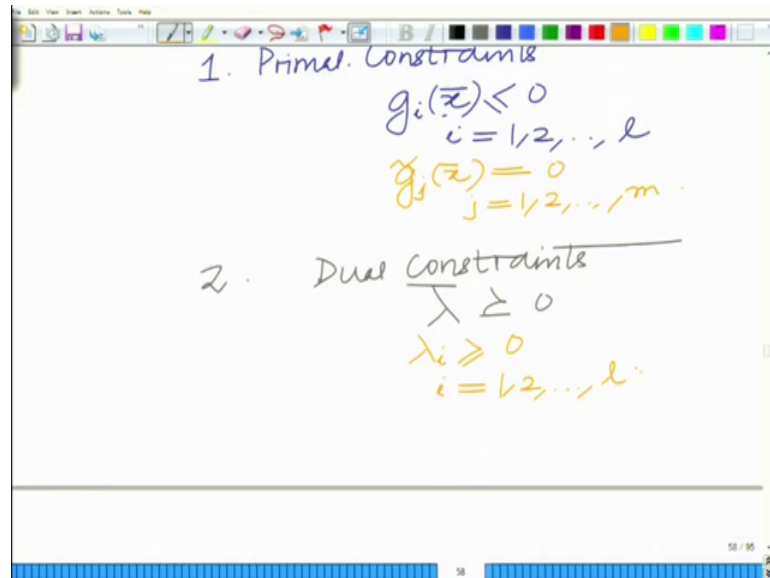 File Edit View Insert Actions Tools Help
1. Primal. Constraints
g_i(x̄) ≤ 0
i = 1, 2, .., l
g̃_j(x̄) = 0
j = 1, 2, .., m.
2. Dual Constraints
λ̄ ⪰ 0
λ_i ≥ 0
i = 1, 2, ..., l.
58 / 95
58